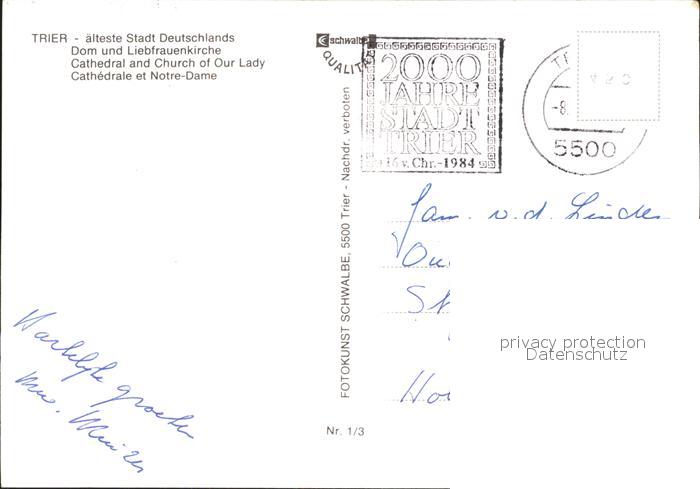 TRIER - älteste Stadt Deutschlands
Dom und Liebfrauenkirche
Cathedral and Church of Our Lady
Cathédrale et Notre-Dame
schwalbe
QUALITÄT
2000
JAHRE
STADT
TRIER
16 v. Chr.-1984
-8.
5500
FOTOKUNST SCHWALBE, 5500 Trier - Nachdr. verboten
Fam. v.d. Linden
Hartelijke groeten
Mw.
privacy protection
Datenschutz
Nr. 1/3